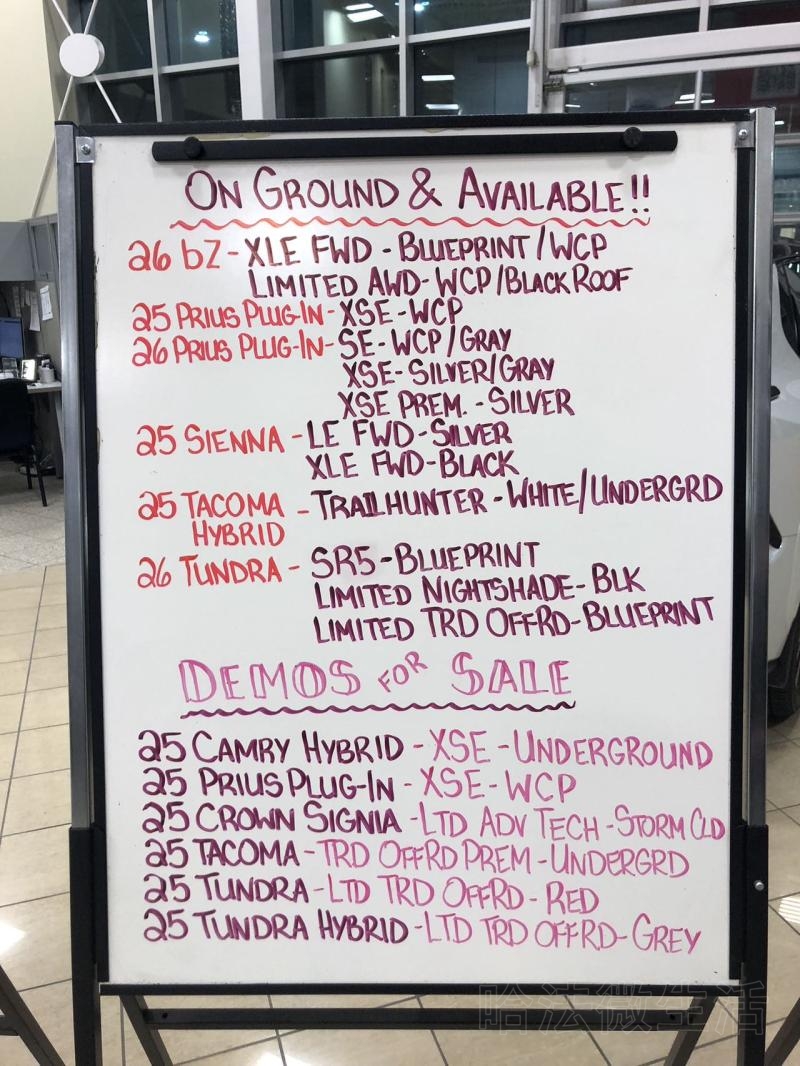 ON GROUND & AVAILABLE!!
26 bZ - XLE FWD - BLUEPRINT/WCP
LIMITED AWD - WCP/BLACK ROOF
25 PRIUS PLUG-IN - XSE - WCP
26 PRIUS PLUG-IN - SE - WCP/GRAY
XSE - SILVER/GRAY
XSE PREM. - SILVER
25 SIENNA - LE FWD - SILVER
XLE FWD - BLACK
25 TACOMA HYBRID - TRAILHUNTER - WHITE/UNDERGRD
26 TUNDRA - SR5 - BLUEPRINT
LIMITED NIGHTSHADE - BLK
LIMITED TRD OFFRD - BLUEPRINT
DEMOS FOR SALE
25 CAMRY HYBRID - XSE - UNDERGROUND
25 PRIUS PLUG-IN - XSE - WCP
25 CROWN SIGNIA - LTD ADV TECH - STORM CLD
25 TACOMA - TRD OFFRD PREM - UNDERGRD
25 TUNDRA - LTD TRD OFFRD - RED
25 TUNDRA HYBRID - LTD TRD OFFRD - GREY
哈法微生活